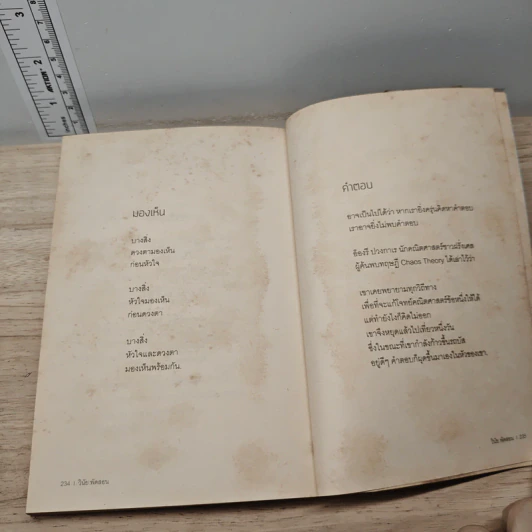 มองเห็น
บางสิ่ง
ดวงตามองเห็น
ก่อนหัวใจ
บางสิ่ง
หัวใจมองเห็น
ก่อนดวงตา
บางสิ่ง
หัวใจและดวงตา
มองเห็นพร้อมกัน
234 | วินัย พัดสอน
คำตอบ
อาจเป็นไปได้ว่า หากเรายิ่งครุ่นคิดหาคำตอบ
เราอาจยิ่งไม่พบคำตอบ
อ็องรี ปวงกาเร นักคณิตศาสตร์ชาวฝรั่งเศส
ผู้ค้นพบทฤษฎี Chaos Theory ได้เล่าไว้ว่า
เขาเคยพยายามทุกวิถีทาง
เพื่อที่จะแก้โจทย์คณิตศาสตร์ข้อหนึ่งให้ได้
แต่ทำยังไงก็คิดไม่ออก
เขาจึงหยุดแล้วไปเที่ยวหนึ่งวัน
ซึ่งในขณะที่เขากำลังก้าวขึ้นรถบัส
อยู่ดีๆ คำตอบก็ผุดขึ้นมาเองในหัวของเขา
3
2
1
ACTION
inches